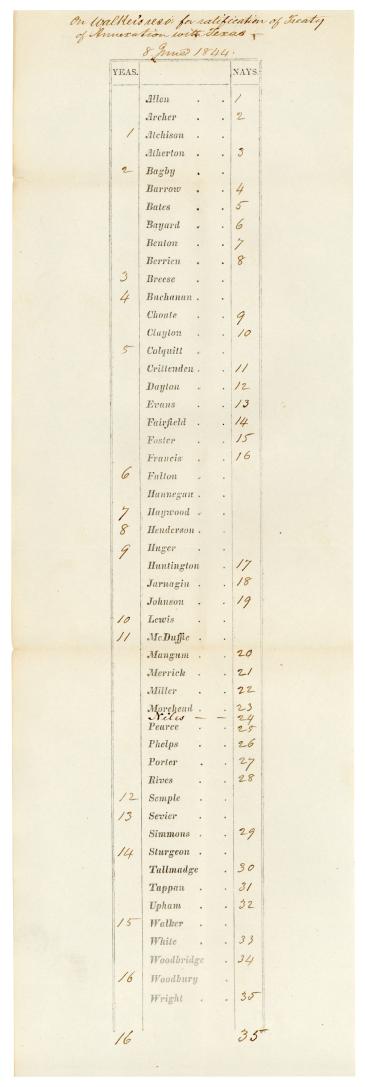 On Walker's reso. for ratification of Treaty
of Annexation with Texas
8 June 1844.
YEAS. NAYS.
Allen . . 1
Archer . . 2
1 Atchison . .
Atherton . . 3
2 Bagby . .
Barrow . . 4
Bates . . 5
Bayard . . 6
Benton . . 7
Berrien . . 8
3 Breese . .
4 Buchanan . .
Choate . . 9
Clayton . . 10
5 Colquitt . .
Crittenden . . 11
Dayton . . 12
Evans . . 13
Fairfield . . 14
Foster . . 15
Francis . . 16
6 Fulton . .
Hannegan . .
7 Haywood . .
8 Henderson . .
9 Huger . .
Huntington . 17
Jarnagin . . 18
Johnson . . 19
10 Lewis . .
11 McDuffie . .
Mangum . . 20
Merrick . . 21
Miller . . 22
Morehead . . 23
Niles — — 24
Pearce . . 25
Phelps . . 26
Porter . . 27
Rives . . 28
12 Semple . .
13 Sevier . .
Simmons . . 29
14 Sturgeon . .
Tallmadge . 30
Tappan . . 31
Upham . . 32
15 Walker . .
White . . 33
Woodbridge . 34
16 Woodbury .
Wright . . 35
16 35